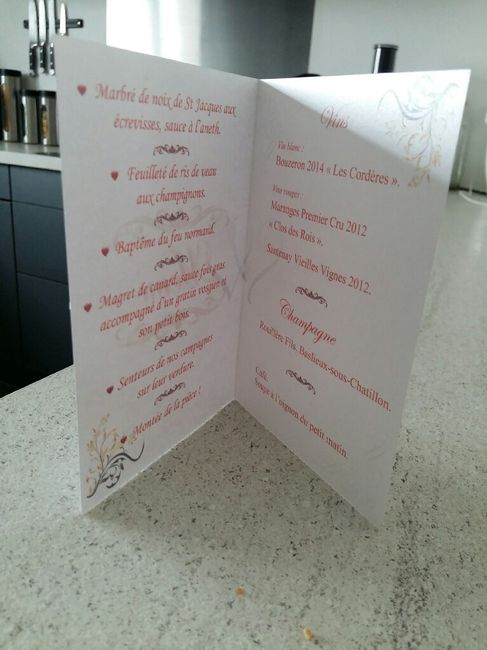 Marbré de noix de St Jacques aux
écrevisses, sauce à l'aneth.
Feuilleté de ris de veau
aux champignons.
Baptême du feu normand.
Magret de canard, sauce foie gras
accompagné d'un gratin vosgien et
son petit bois.
Senteurs de nos campagnes
sur leur verdure.
Montée de la pièce !
Vins
Vin blanc :
Bouzeron 2014 « Les Cordères ».
Vins rouges :
Maranges Premier Cru 2012
« Clos des Rois ».
Santenay Vieilles Vignes 2012.
Champagne
Rouillère Fils, Baslieux-sous-Chatillon.
Café.
Soupe à l'oignon du petit matin.